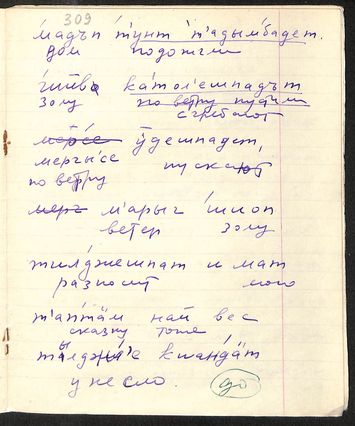 309
мадъп т̓унт т̓адымбадет.
дом подожгли
о̓шив ка́тол'ешпадът
золу по ветру пудили
сгребают
мерг̓се ӱдешпадет,
мергы̓се пускают
по ветру
мерг м̓арыг ш̓иоп
ветер золу
тилджешпат и мат
разносит мого
т̓аптӓм най вес
сказку тоже
ты́лджи̓е квандӓт
унесло. до